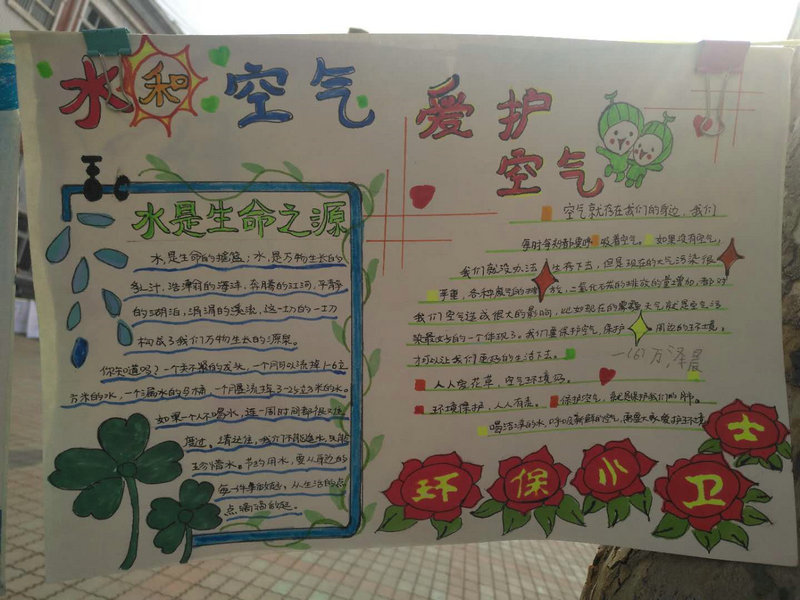 水和空气
水是生命之源
水,是生命的摇篮;水,是万物生长的
乳汁,浩瀚的海洋,奔腾的江河,平静
的湖泊,涓涓的溪流,这一切的一切
构成了我们万物生长的源泉。
你知道吗?一个关不紧的龙头,一个月可以流掉1-6立
方米的水,一个漏水的马桶,一个月要流掉3-25立方米的水。
如果一个人不喝水,连一周时间都很难
度过,请记住,我们不能
珍惜水。节约用水,要从身边的
每一件事做起,从生活的点
点滴滴做起。
爱护
空气
空气就存在我们的身边,我们
每时每刻都要呼吸着空气。如果没有空气,
我们就没办法生存下去,但是现在的大气污染很
严重,各种废气的排放,二氧化碳的排放的量增加,都对
我们空气造成很大的影响,比如现在的雾霾天气就是空气污
染最好的一个体现了。我们要保护空气,保护周边的环境。
才可以让我们更好的生活下去。
—167万泽晨
人人爱花草,空气环境好。
环境保护,人人有责。保护空气,就是保护我们的肺。
喝洁净的水,呼吸新鲜的空气,需要大家爱护环境
环保小卫士